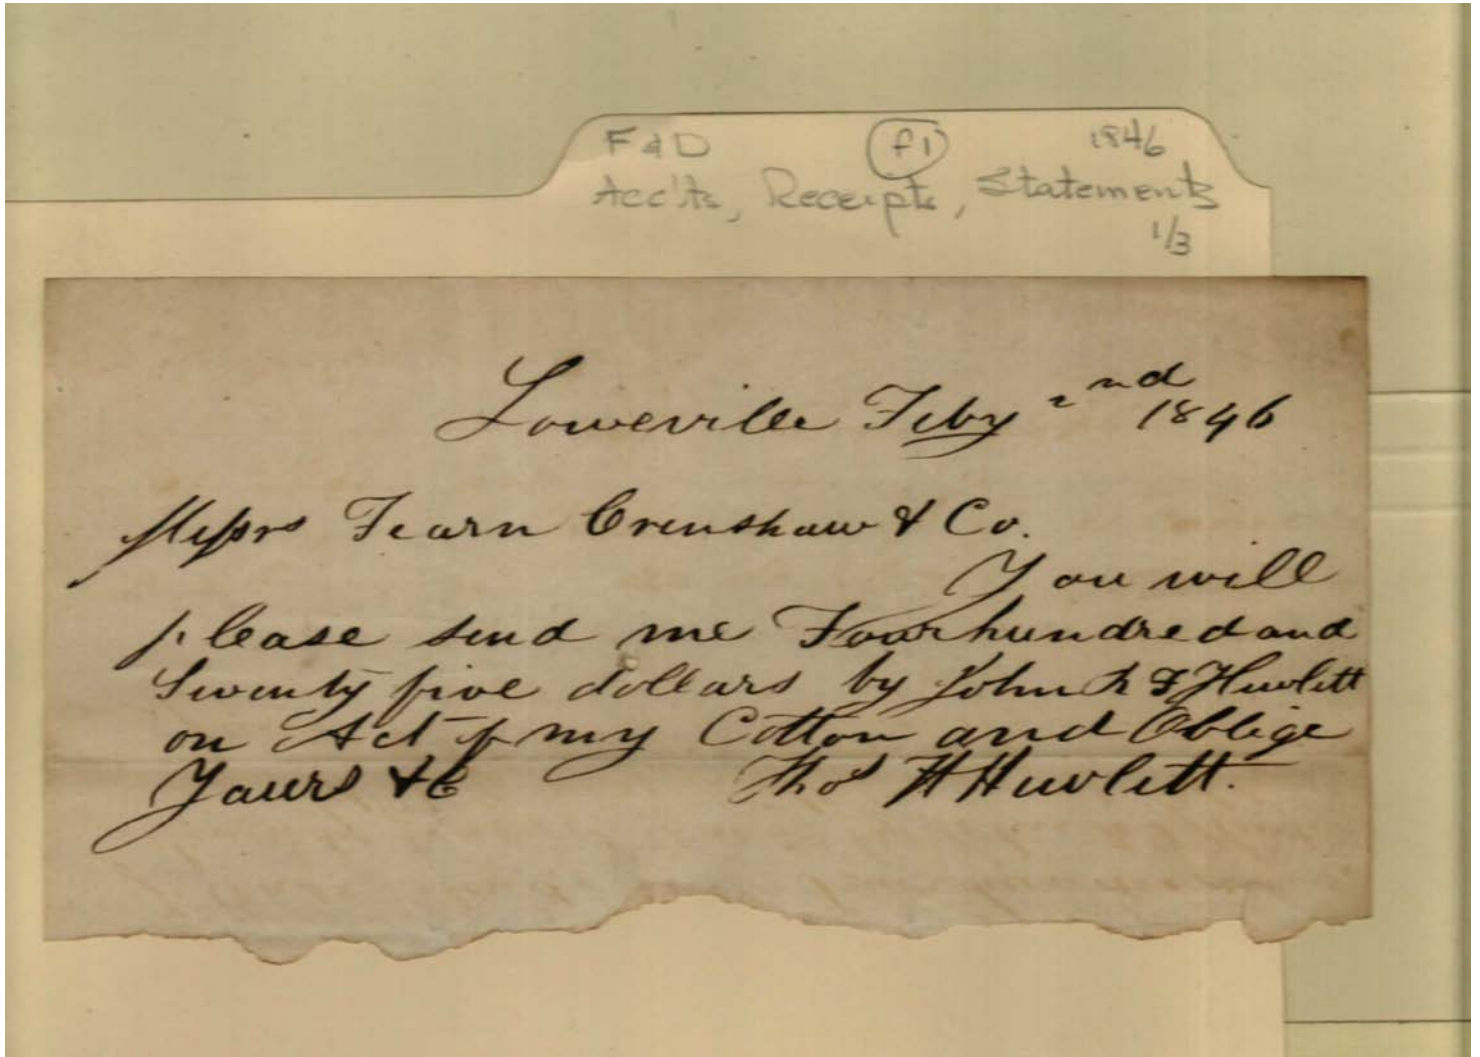 F & D f1 1846
Acc'ts, Receipts, Statements
1/3
Loweville Feby 2nd 1846
Messrs Fearn Crenshaw & Co.
You will
please send me Four hundred and
Twenty five dollars by John R F Hewlett
on Act of my Cotton and Oblige
Yours &c Thos H Hewlett.